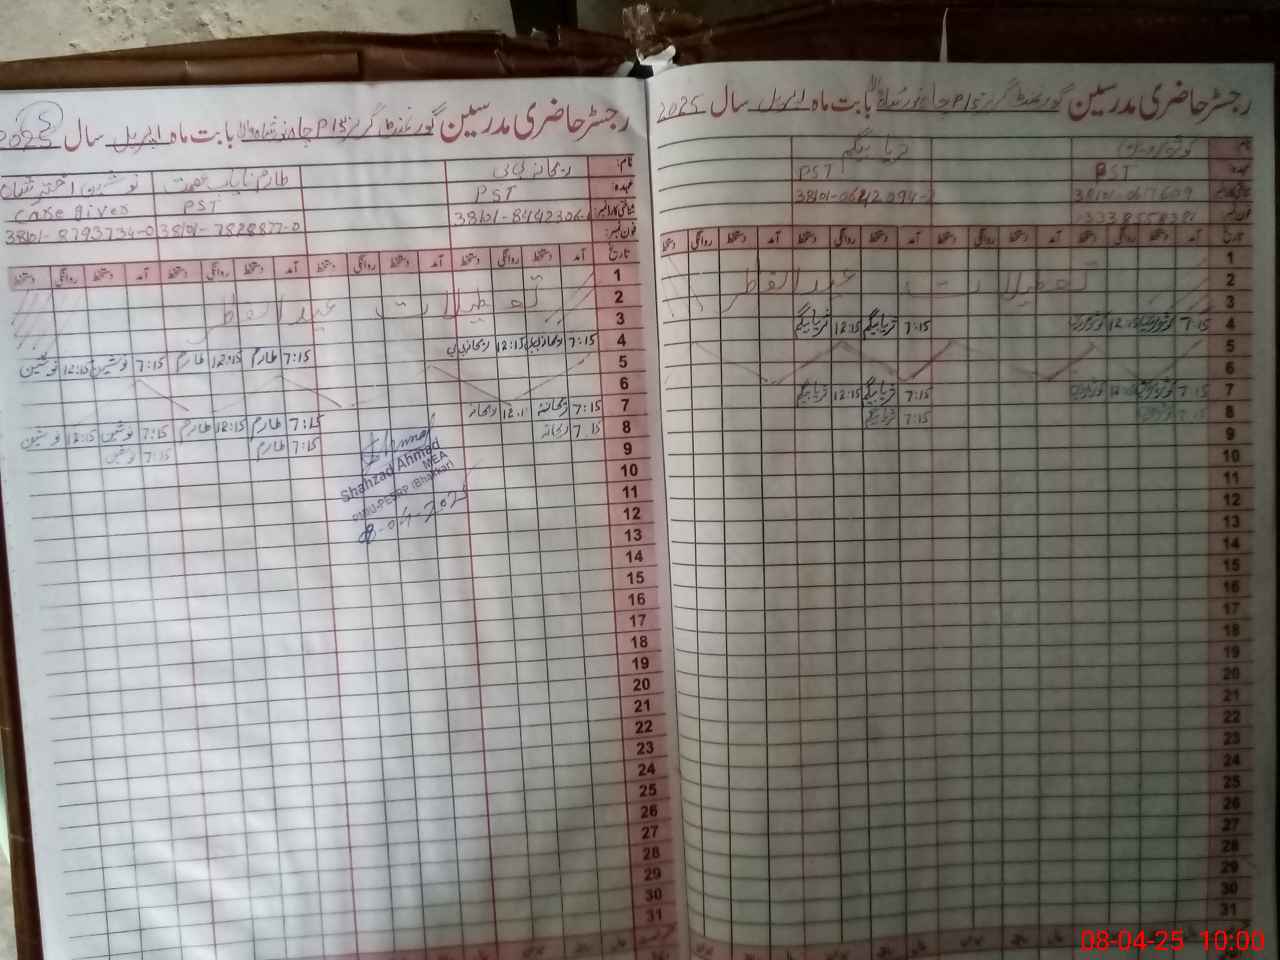 رجسٹر حاضری مدرسین گورنمنٹ گرلز P/S چاہ نور شاہ والا بابت ماہ اپریل سال 2025
نام:
عہدہ: PST PST
شناختی کارڈ نمبر:
فون نمبر:
ثریا بیگم
تاریخ آمد دستخط روانگی دستخط آمد دستخط روانگی دستخط آمد دستخط روانگی دستخط آمد دستخط روانگی دستخط
1
2 تعطیلات عید الفطر
3
4 7:15 12:15 7:15 ثریا بیگم 12:15 ثریا بیگم
5
6
7 7:15 7:15 ثریا بیگم 12:15 ثریا بیگم
8 7:15 7:15 ثریا بیگم
9
10
11
12
13
14
15
16
17
18
19
20
21
22
23
24
25
26
27
28
29
30
31
رجسٹر حاضری مدرسین گورنمنٹ گرلز P/S چاہ نور شاہ والا بابت ماہ اپریل سال 2025
نام: ریحانہ بی بی
عہدہ: PST PST Care giver
شناختی کارڈ نمبر: 38101-7828877-0 38101-8793734-0
فون نمبر:
تاریخ آمد دستخط روانگی دستخط آمد دستخط روانگی دستخط آمد دستخط روانگی دستخط آمد دستخط روانگی دستخط
1
2 تعطیلات عید الفطر
3
4 7:15 ریحانہ بی بی 12:15 ریحانہ بی بی 7:15 طارم 12:15 طارم 7:15 نوشین 12:15 نوشین
5
6
7 7:15 ریحانہ ریحانہ 7:15 طارم 12:15 طارم 7:15 نوشین 12:15 نوشین
8 7:15 ریحانہ 7:15 طارم 7:15 نوشین
9
10
11
12
13
14
15
16
17
18
19
20
21
22
23
24
25
26
27
28
29
30
31
Shahzad Ahmad
MEA
PMIU-PESRP (Bhakkar)
8-04-2025
08-04-25 10:00